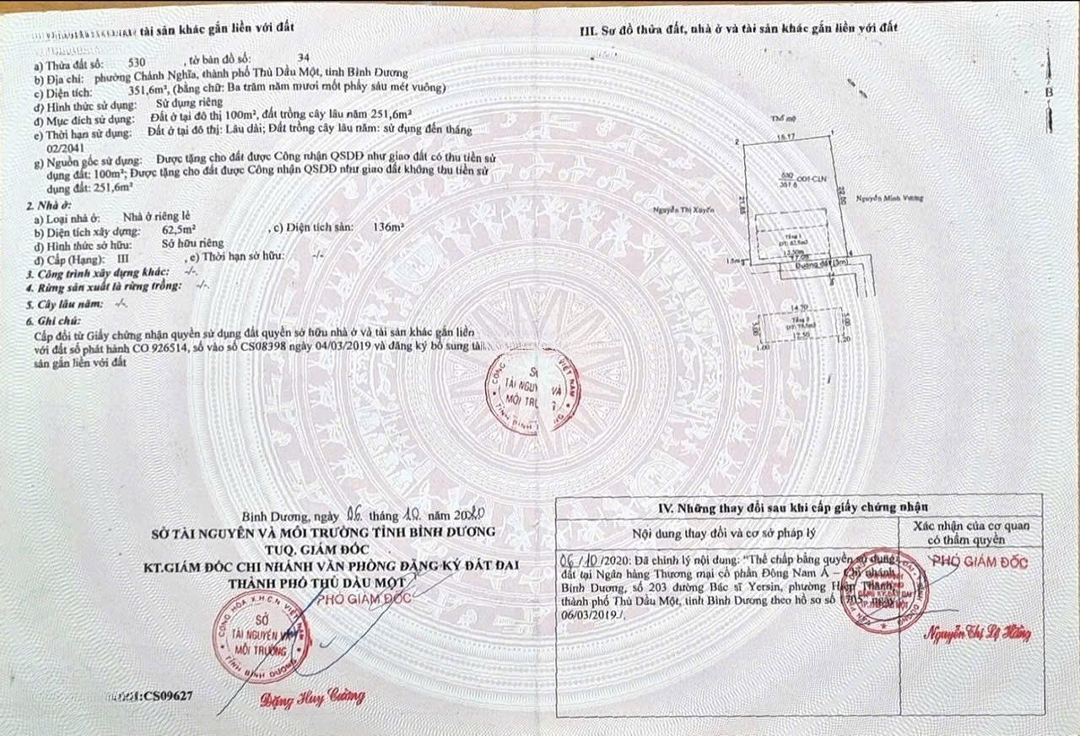 tài sản khác gắn liền với đất
a) Thửa đất số: 530 , tờ bản đồ số: 34
b) Địa chỉ: phường Chánh Nghĩa, thành phố Thủ Dầu Một, tỉnh Bình Dương
c) Diện tích: 351,6m², (bằng chữ: Ba trăm năm mươi mốt phẩy sáu mét vuông)
d) Hình thức sử dụng: Sử dụng riêng
đ) Mục đích sử dụng: Đất ở tại đô thị 100m², đất trồng cây lâu năm 251,6m²
e) Thời hạn sử dụng: Đất ở tại đô thị: Lâu dài; Đất trồng cây lâu năm: sử dụng đến tháng
02/2041
g) Nguồn gốc sử dụng: Được tặng cho đất được Công nhận QSDĐ như giao đất có thu tiền sử
dụng đất: 100m²; Được tặng cho đất được Công nhận QSDĐ như giao đất không thu tiền sử
dụng đất: 251,6m²
2. Nhà ở:
a) Loại nhà ở: Nhà ở riêng lẻ
b) Diện tích xây dựng: 62,5m² , c) Diện tích sàn: 136m²
d) Hình thức sở hữu: Sở hữu riêng
đ) Cấp (Hạng): III , e) Thời hạn sở hữu: -/-
3. Công trình xây dựng khác: -/-
4. Rừng sản xuất là rừng trồng: -/-
5. Cây lâu năm: -/-
6. Ghi chú:
Cấp đổi từ Giấy chứng nhận quyền sử dụng đất quyền sở hữu nhà ở và tài sản khác gắn liền
với đất số phát hành CO 926514, số vào sổ CS08398 ngày 04/03/2019 và đăng ký bổ sung tài
sản gắn liền với đất
CỘNG VIỆT NAM
TÀI NGUYÊN VÀ
MÔI TRƯỜNG
TỈNH BÌNH
Bình Dương, ngày 06 tháng 10 năm 2020
SỞ TÀI NGUYÊN VÀ MÔI TRƯỜNG TỈNH BÌNH DƯƠNG
TUQ. GIÁM ĐỐC
KT.GIÁM ĐỐC CHI NHÁNH VĂN PHÒNG ĐĂNG KÝ ĐẤT ĐAI
THÀNH PHỐ THỦ DẦU MỘT
PHÓ GIÁM ĐỐC
CỘNG HÒA X.H.C.N VIỆT NAM
SỞ
TÀI NGUYÊN VÀ
MÔI TRƯỜNG
TỈNH BÌNH DƯƠNG
Đặng Huy Cường
:CS09627
III. Sơ đồ thửa đất, nhà ở và tài sản khác gắn liền với đất
B
Thổ mộ
2
16.17
1
530
351.6
ODT-CLN
21.88
22.00
Nguyễn Thị Xuyến
Nguyễn Minh Vương
Tầng 1
12.50
4
1.5m
Đường đất (3m)
14.70
Tầng 2
5.00
5.00
12.50
1.00
1.20
IV. Những thay đổi sau khi cấp giấy chứng nhận
Nội dung thay đổi và cơ sở pháp lý
Xác nhận của cơ quan
có thẩm quyền
06/10/2020: Đã chỉnh lý nội dung: "Thế chấp bằng quyền sử dụng
đất tại Ngân hàng Thương mại cổ phần Đông Nam Á – Chi nhánh
Bình Dương, số 203 đường Bác sĩ Yersin, phường Hiệp Thành,
thành phố Thủ Dầu Một, tỉnh Bình Dương theo hồ sơ số ngày
06/03/2019./.
PHÓ GIÁM ĐỐC
Nguyễn Thị Lệ Hằng